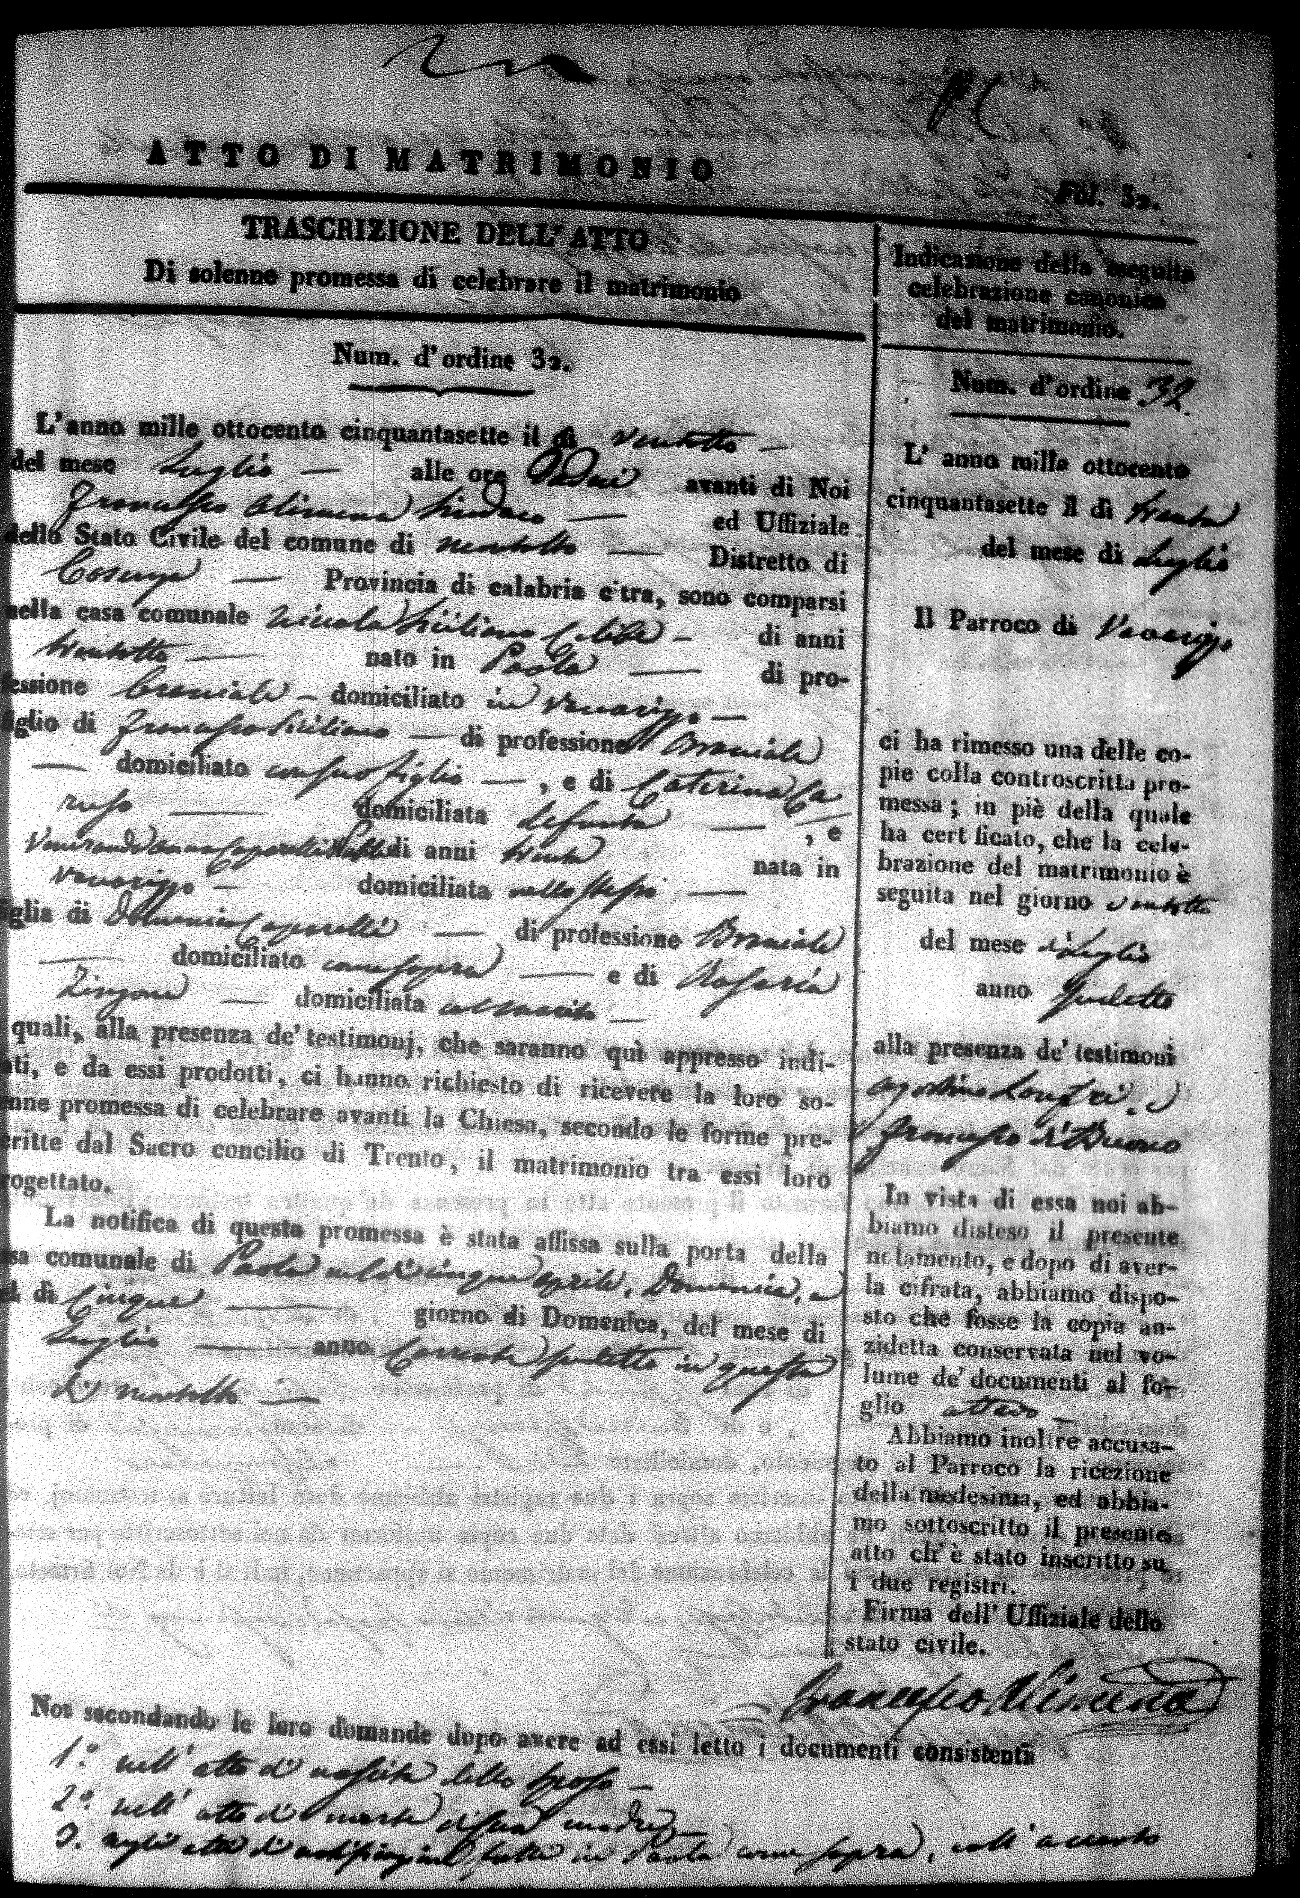 ATTO DI MATRIMONIO
Fol. 32.
TRASCRIZIONE DELL' ATTO
Di solenne promessa di celebrare il matrimonio
Num. d'ordine 32.
L'anno mille ottocento cinquantasette il dì ventotto —
del mese Luglio — alle ore avanti di Noi
Francesco Alimena Sindaco — ed Uffiziale
dello Stato Civile del comune di Montalto — Distretto di
Cosenza — Provincia di calabria citra, sono comparsi
nella casa comunale Nicola Siciliano Celibe – di anni
trentotto — nato in Paola — di pro-
essione Braciale – domiciliato in Vaccarizzo —
iglio di Francesco Siciliano — di professione Braciale
— domiciliato con suo figlio —, e di Caterina Ca
ruso — domiciliata defunta —, e
Veneranda Caparelli Nubile di anni trenta nata in
Vaccarizzo – domiciliata nello stesso —
iglia di Domenico Caparelli — di professione Braciale
— domiciliato come sopra — e di Rosaria
Zingone — domiciliata col marito —
quali, alla presenza de' testimonj, che saranno quì appresso indi-
ati, e da essi prodotti, ci hanno richiesto di ricevere la loro so-
enne promessa di celebrare avanti la Chiesa, secondo le forme pre-
critte dal Sacro concilio di Trento, il matrimonio tra essi loro
rogettato.
La notifica di questa promessa è stata affissa sulla porta della
sa comunale di Paola nel dì cinque aprile, Domenica, e
l dì Cinque — giorno di Domenica, del mese di
Luglio — anno Corrente suddetto in questa
di Montalto —
Noi secondando le loro domande dopo avere ad essi letto i documenti consistenti
1.° nell' atto di nascita dello sposo —
2.° nell' atto di morte di sua madre —
3. negli atti di notificazione fatte in Paola come sopra, coll' accerto
Indicazione della seguita
celebrazione canonica
del matrimonio.
Num. d'ordine 32.
L' anno mille ottocento
cinquantasette il dì trenta
del mese di Luglio
Il Parroco di Vaccarizzo
ci ha rimesso una delle co-
pie colla controscritta pro-
messa; in piè della quale
ha cert ficato, che la cele-
brazione del matrimonio è
seguita nel giorno ventotto
del mese di Luglio
anno suddetto
alla presenza de' testimoni
Agostino e
Francesco di Buono
In vista di essa noi ab-
biamo disteso il presente
notamento, e dopo di aver-
la cifrata, abbiamo dispo-
sto che fosse la copia an-
zidetta conservata nel vo-
lume de' documenti al fo-
glio ottavo —
Abbiamo inoltre accusa-
to al Parroco la ricezione
della medesima, ed abbia-
mo sottoscritto il presente
atto ch' è stato inscritto su
i due registri.
Firma dell' Uffiziale dello
stato civile.
Francesco Alimena